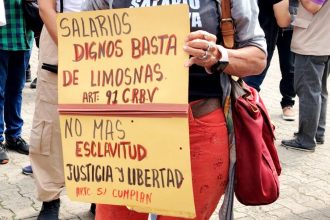 SALARIO
SALARIOS
DIGNOS BASTA
DE LIMOSNAS.
ART. 91 CRBV
NO MAS
ESCLAVITUD
JUSTICIA Y LIBERTAD
ARTC S/ CUMPLAN